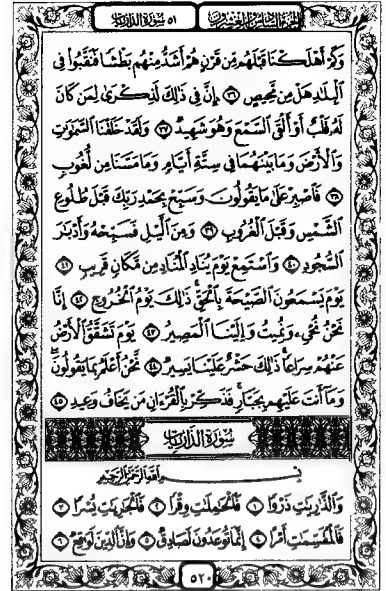 الجزء السادس والعشرون ٥١ سورة الذاريات
وَكَمْ أَهْلَكْنَا قَبْلَهُم مِّن قَرْنٍ هُمْ أَشَدُّ مِنْهُم بَطْشًا فَنَقَّبُوا۟ فِى
ٱلْبِلَٰدِ هَلْ مِن مَّحِيصٍ ٣٦ إِنَّ فِى ذَٰلِكَ لَذِكْرَىٰ لِمَن كَانَ
لَهُۥ قَلْبٌ أَوْ أَلْقَى ٱلسَّمْعَ وَهُوَ شَهِيدٌ ٣٧ وَلَقَدْ خَلَقْنَا ٱلسَّمَٰوَٰتِ
وَٱلْأَرْضَ وَمَا بَيْنَهُمَا فِى سِتَّةِ أَيَّامٍ وَمَا مَسَّنَا مِن لُّغُوبٍ
٣٨ فَٱصْبِرْ عَلَىٰ مَا يَقُولُونَ وَسَبِّحْ بِحَمْدِ رَبِّكَ قَبْلَ طُلُوعِ
ٱلشَّمْسِ وَقَبْلَ ٱلْغُرُوبِ ٣٩ وَمِنَ ٱلَّيْلِ فَسَبِّحْهُ وَأَدْبَٰرَ
ٱلسُّجُودِ ٤٠ وَٱسْتَمِعْ يَوْمَ يُنَادِ ٱلْمُنَادِ مِن مَّكَانٍ قَرِيبٍ ٤١
يَوْمَ يَسْمَعُونَ ٱلصَّيْحَةَ بِٱلْحَقِّ ۚ ذَٰلِكَ يَوْمُ ٱلْخُرُوجِ ٤٢ إِنَّا
نَحْنُ نُحْىِۦ وَنُمِيتُ وَإِلَيْنَا ٱلْمَصِيرُ ٤٣ يَوْمَ تَشَقَّقُ ٱلْأَرْضُ
عَنْهُمْ سِرَاعًا ۚ ذَٰلِكَ حَشْرٌ عَلَيْنَا يَسِيرٌ ٤٤ نَّحْنُ أَعْلَمُ بِمَا يَقُولُونَ ۖ
وَمَآ أَنتَ عَلَيْهِم بِجَبَّارٍ ۖ فَذَكِّرْ بِٱلْقُرْءَانِ مَن يَخَافُ وَعِيدِ ٤٥
سُورَةُ الذَّارِيَاتِ
بِسْمِ ٱللَّهِ ٱلرَّحْمَٰنِ ٱلرَّحِيمِ
وَٱلذَّٰرِيَٰتِ ذَرْوًا ١ فَٱلْحَٰمِلَٰتِ وِقْرًا ٢ فَٱلْجَٰرِيَٰتِ يُسْرًا ٣
فَٱلْمُقَسِّمَٰتِ أَمْرًا ٤ إِنَّمَا تُوعَدُونَ لَصَادِقٌ ٥ وَإِنَّ ٱلدِّينَ لَوَٰقِعٌ ٦
٥٢٠